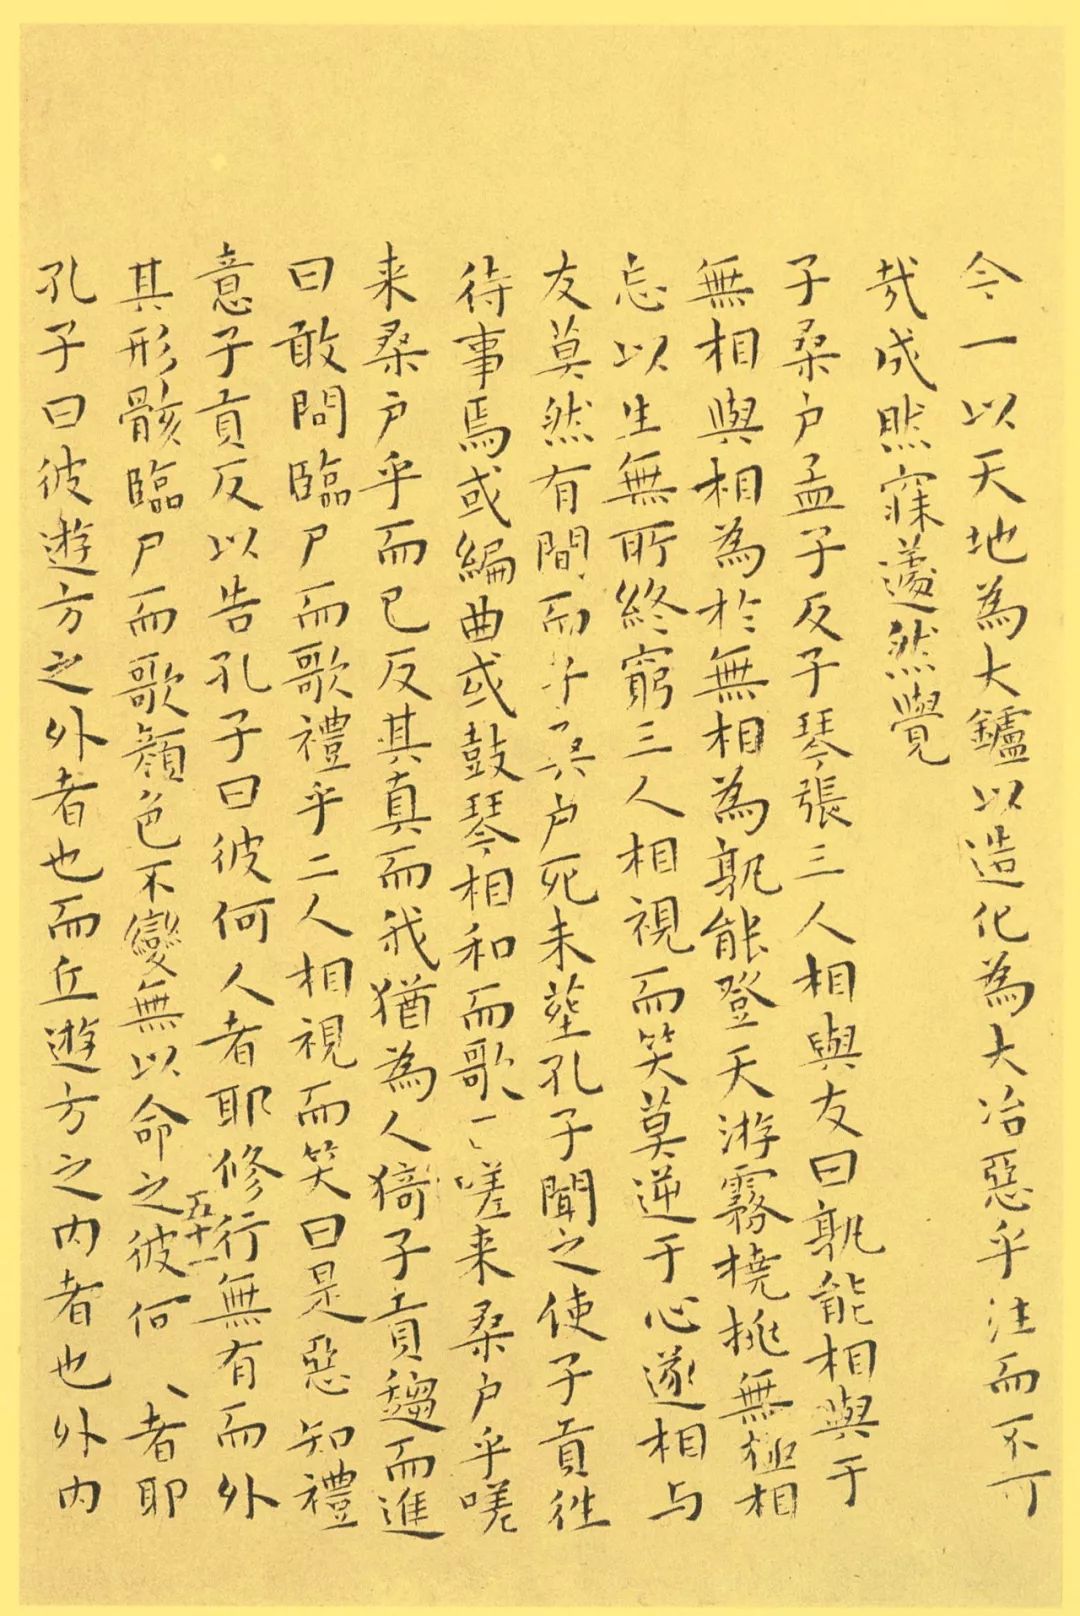 今一以天地為大鑪以造化為大冶惡乎往而不可
哉成然寐蘧然覺
子桑户孟子反子琴張三人相與友曰孰能相與于
無相與相為於無相為孰能登天游霧撓挑無極相
忘以生無所終窮三人相視而笑莫逆于心遂相与
友莫然有間而子桑户死未塟孔子聞之使子貢往
待事焉或編曲或鼓琴相和而歌曰嗟来桑户乎嗟
来桑户乎而已反其真而我猶為人猗子貢趨而進
曰敢問臨尸而歌禮乎二人相視而笑曰是惡知禮
意子貢反以告孔子曰彼何人者耶修行無有而外
其形骸臨尸而歌顔色不變無以命之彼何人者耶
孔子曰彼遊方之外者也而丘遊方之内者也外内
五十一